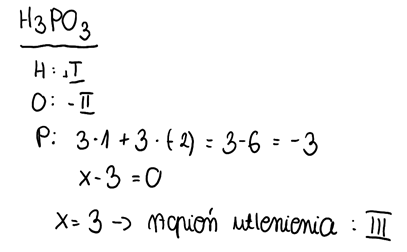 H₃PO₃
H: +I
O: -II
P: 3·1 + 3·(-2) = 3-6 = -3
x-3 = 0
x = 3 -> stopień utlenienia : III